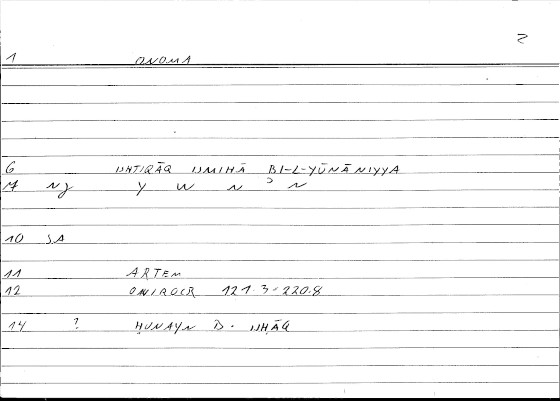 2
1 ONOMA
6 IŠTIQĀQ ISMIHĀ BI-L-YŪNĀNIYYA
Y W N ʾ N
10 SA
11 ARTEM
12 ONIROCR 121.3-220.8
14 ? ḤUNAYN B. ISḤĀQ